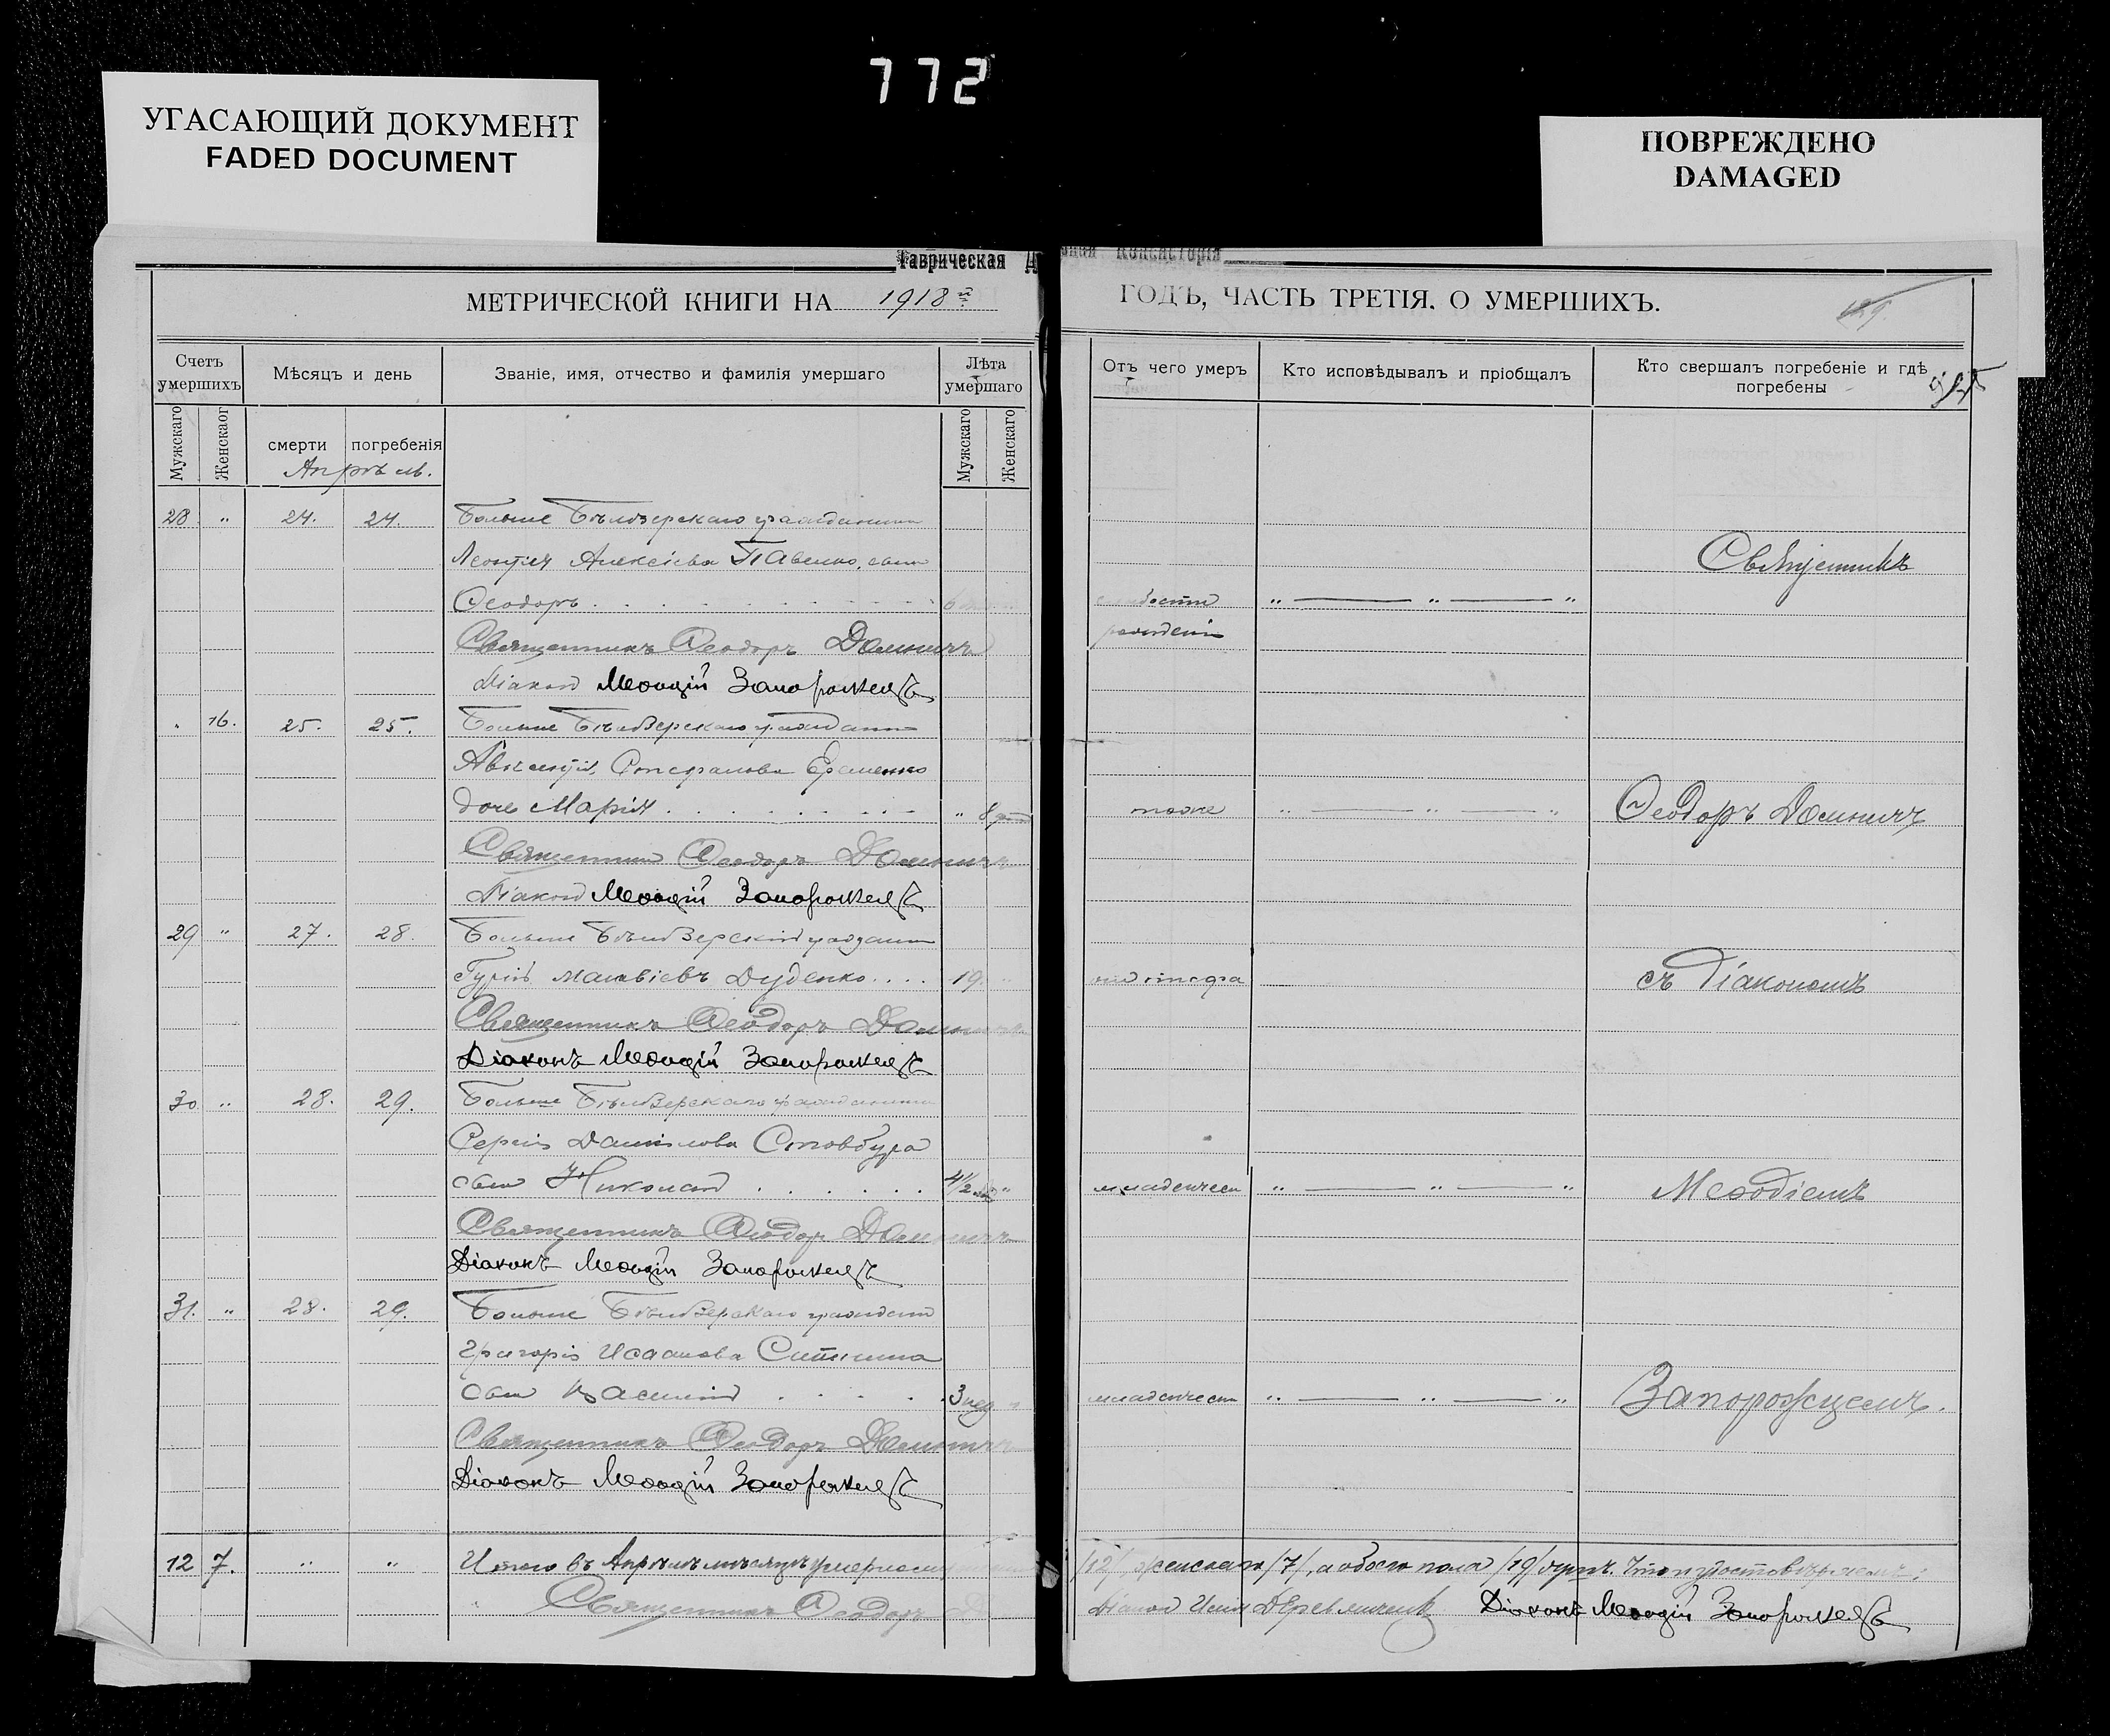 772
УГАСАЮЩИЙ ДОКУМЕНТ
FADED DOCUMENT
ПОВРЕЖДЕНО
DAMAGED
Таврическая Д
Консисторія
МЕТРИЧЕСКОЙ КНИГИ НА 1918й
ГОДЪ, ЧАСТЬ ТРЕТІЯ. О УМЕРШИХЪ.
Счетъ умершихъ
Мѣсяцъ и день
Званіе, имя, отчество и фамилія умершаго
Лѣта умершаго
Отъ чего умеръ
Кто исповѣдывалъ и пріобщалъ
Кто свершалъ погребеніе и гдѣ погребены
Мужскаго
Женскаог
смерти
погребенія
Мужскаго
Женскаго
Апрѣль.
28 " 24. 24. Больше Бѣлозерскаго гражданина
Леонтія Алексіева Павенко, сынъ
Священникъ
Ѳеодоръ слабости " — " — "
рожденія
Священникъ Ѳеодоръ Домничъ
Діаконъ Меѳодій Запорожецъ
" 16. 25. 25. Больше Бѣлозерскаго гражданина
Авксентія Стефанова Еременко
дочь Марія " 8 тоже " — " — " Ѳеодоръ Домничъ
Священникъ Ѳеодоръ Домничъ
Діаконъ Меѳодій Запорожецъ
29 " 27. 28. Больше Бѣлозерскій гражданинъ
Гурій Матвіевъ Дуденко 19. " отъ тифа съ Діакономъ
Священникъ Ѳеодоръ Домничъ
Діаконъ Меѳодій Запорожецъ
30 " 28. 29. Больше Бѣлозерскаго гражданина
Сергія Даніилова Стовбура
сынъ Николай 4/2 " младенческ " — " — " Меѳодіемъ
Священникъ Ѳеодоръ Домничъ
Діаконъ Меѳодій Запорожецъ
31. " 28. 29. Больше Бѣлозерскаго гражданин
Григорія Исаакова
сынъ Василій 3 нед " младенческ " — " — " Запорожцемъ.
Священникъ Ѳеодоръ Домничъ
Діаконъ Меѳодій Запорожецъ
12 7. " " Итого въ Апрѣлѣ мѣсяцѣ умерло /12/, женскаго /7/, а обоего пола /19/ душъ. Что и удостовѣряемъ:
Священникъ Ѳеодоръ Д Діаконъ Діаконъ Меѳодій Запорожецъ